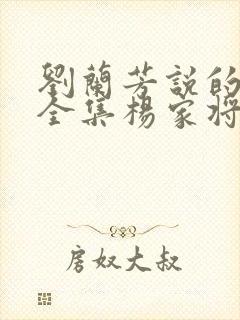 劉蘭芳說的
全集楊家將
房奴大叔